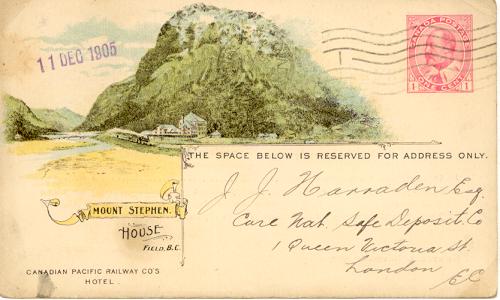 11 DEC 1905
CANADA POSTAGE
1 ONE CENT 1
THE SPACE BELOW IS RESERVED FOR ADDRESS ONLY.
J. J. Harraden Esq.
Care Nat. Safe Deposit Co
1 Queen Victoria St.
London
EC
MOUNT STEPHEN.
HOUSE
FIELD, B.C.
CANADIAN PACIFIC RAILWAY CO'S
HOTEL.